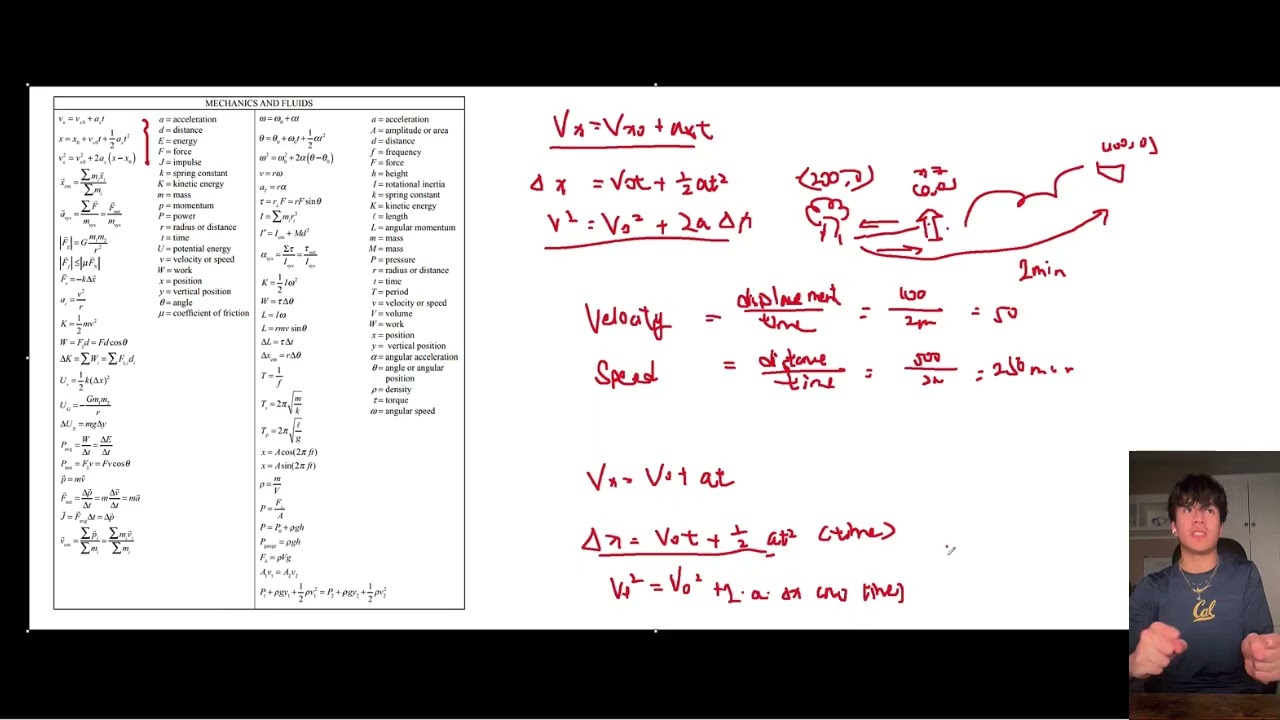 MECHANICS AND FLUIDS
vₓ = vₓ₀ + aₓt
x = x₀ + vₓ₀t + 1/2 aₓt²
vₓ² = vₓ₀² + 2aₓ(x − x₀)
x⃗cm = ∑mᵢx⃗ᵢ / ∑mᵢ
a⃗sys = ∑F⃗ / msys = F⃗net / msys
|F⃗g| = G m₁m₂ / r²
|F⃗f| ≤ |μF⃗N|
F⃗s = −kΔx⃗
ac = v² / r
K = 1/2 mv²
W = F∥d = Fd cos θ
ΔK = ∑Wᵢ = ∑F∥,ᵢdᵢ
Us = 1/2 k(Δx)²
UG = − Gm₁m₂ / r
ΔUg = mgΔy
Pavg = W / Δt = ΔE / Δt
Pinst = F∥v = Fv cos θ
p⃗ = mv⃗
F⃗net = Δp⃗ / Δt = m Δv⃗ / Δt = ma⃗
J⃗ = F⃗avgΔt = Δp⃗
v⃗cm = ∑p⃗ᵢ / ∑mᵢ = ∑mᵢv⃗ᵢ / ∑mᵢ
a = acceleration
d = distance
E = energy
F = force
J = impulse
k = spring constant
K = kinetic energy
m = mass
p = momentum
P = power
r = radius or distance
t = time
U = potential energy
v = velocity or speed
W = work
x = position
y = vertical position
θ = angle
μ = coefficient of friction
ω = ω₀ + αt
θ = θ₀ + ω₀t + 1/2 αt²
ω² = ω₀² + 2α(θ − θ₀)
v = rω
aT = rα
τ = r⊥F = rF sin θ
I = ∑mᵢrᵢ²
I′ = Icm + Md²
αsys = Στ / Isys = τnet / Isys
K = 1/2 Iω²
W = τΔθ
L = Iω
L = rmv sin θ
ΔL = τΔt
Δxcm = rΔθ
T = 1/f
Ts = 2π√(m/k)
Tp = 2π√(ℓ/g)
x = A cos(2π ft)
x = A sin(2π ft)
ρ = m/V
P = F⊥/A
P = P₀ + ρgh
Pgauge = ρgh
Fb = ρVg
A₁v₁ = A₂v₂
P₁ + ρgy₁ + 1/2 ρv₁² = P₂ + ρgy₂ + 1/2 ρv₂²
a = acceleration
A = amplitude or area
d = distance
f = frequency
F = force
h = height
I = rotational inertia
k = spring constant
K = kinetic energy
ℓ = length
L = angular momentum
m = mass
M = mass
P = pressure
r = radius or distance
t = time
T = period
v = velocity or speed
V = volume
W = work
x = position
y = vertical position
α = angular acceleration
θ = angle or angular
position
ρ = density
τ = torque
ω = angular speed
Vx = Vx0 + axt
Δx = V0t + 1/2 at²
V² = V0² + 2aΔx
(0,0)
2min
Velocity = displacement / time = 100 / 2m = 50
Speed = distance / time = 500 / 2m = 250
Vx = V0 + at
Δx = V0t + 1/2 at² (time)
= V0² + 2·a·Δx (no time)
Cal